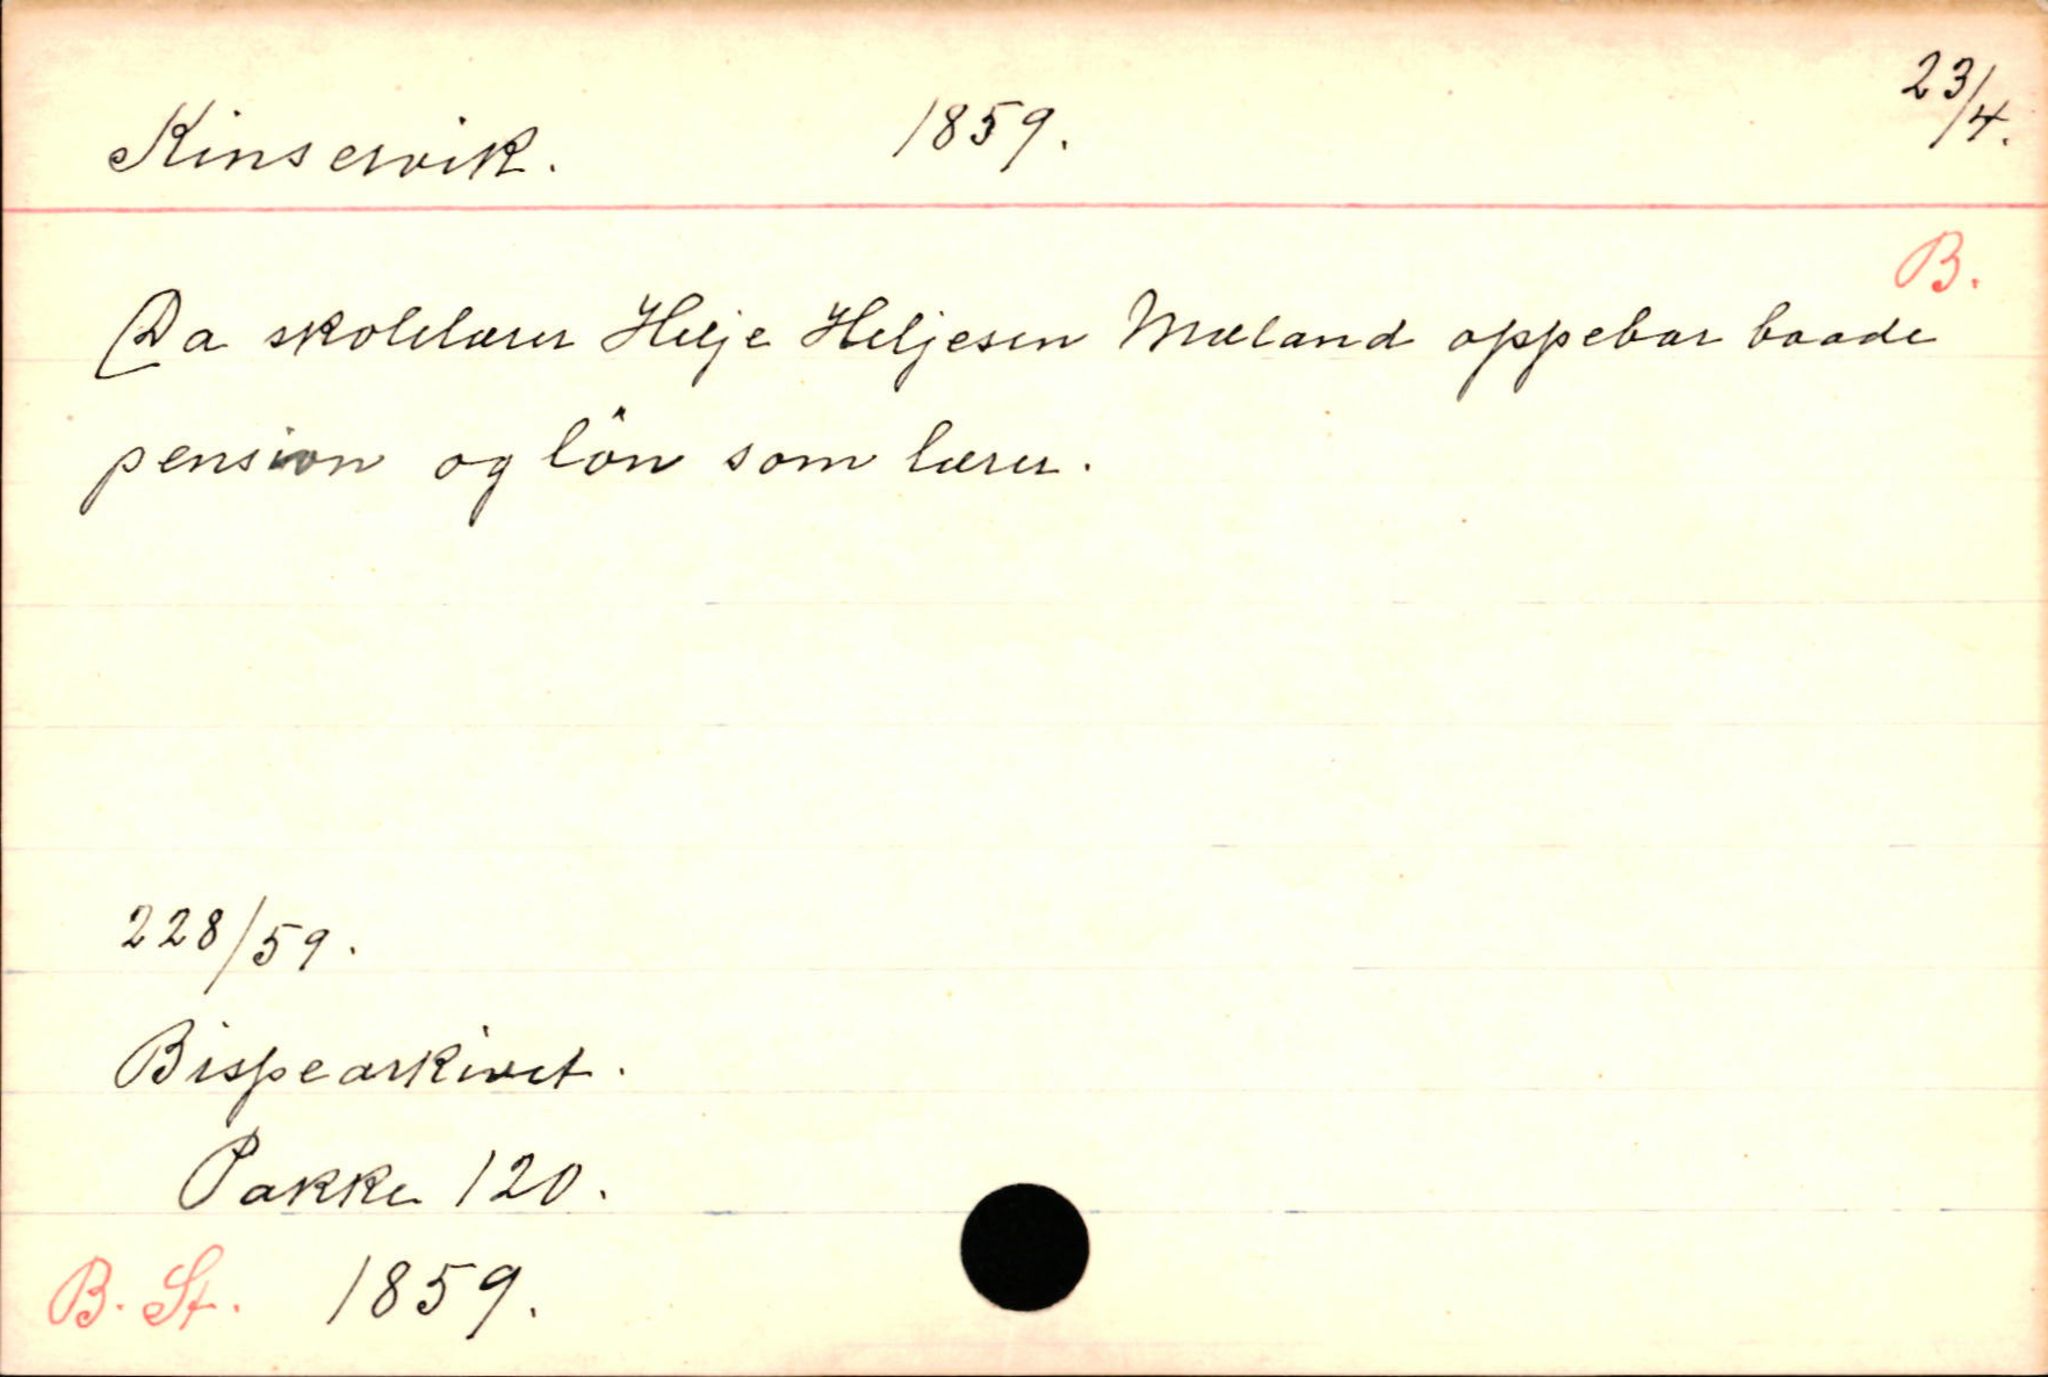 Kinservik. 1859. 23/4.
B.
Da skolelærer Helje Heljesen Mæland oppebar baade
pension og lön som lærer.
228/59.
Bispearkivet.
Pakke 120.
B. St. 1859.